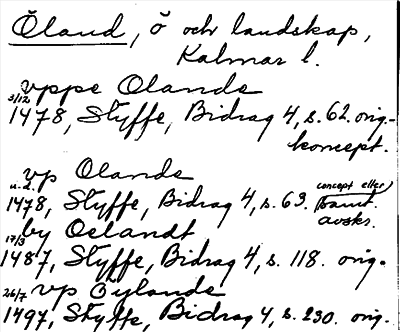 Öland, ö och landskap,
Kalmar l.
vppe Olande
3/12 1478, Styffe, Bidrag 4, s. 62. orig.-
koncept.
vp Olande
u.d. 1478, Styffe, Bidrag 4, s. 63. (concept eller) samt.
avskr.
by Oelandt
17/3 1487, Styffe, Bidrag 4, s. 118. orig.
vp Øylande
26/7 1497, Styffe, Bidrag 4, s. 230. orig.